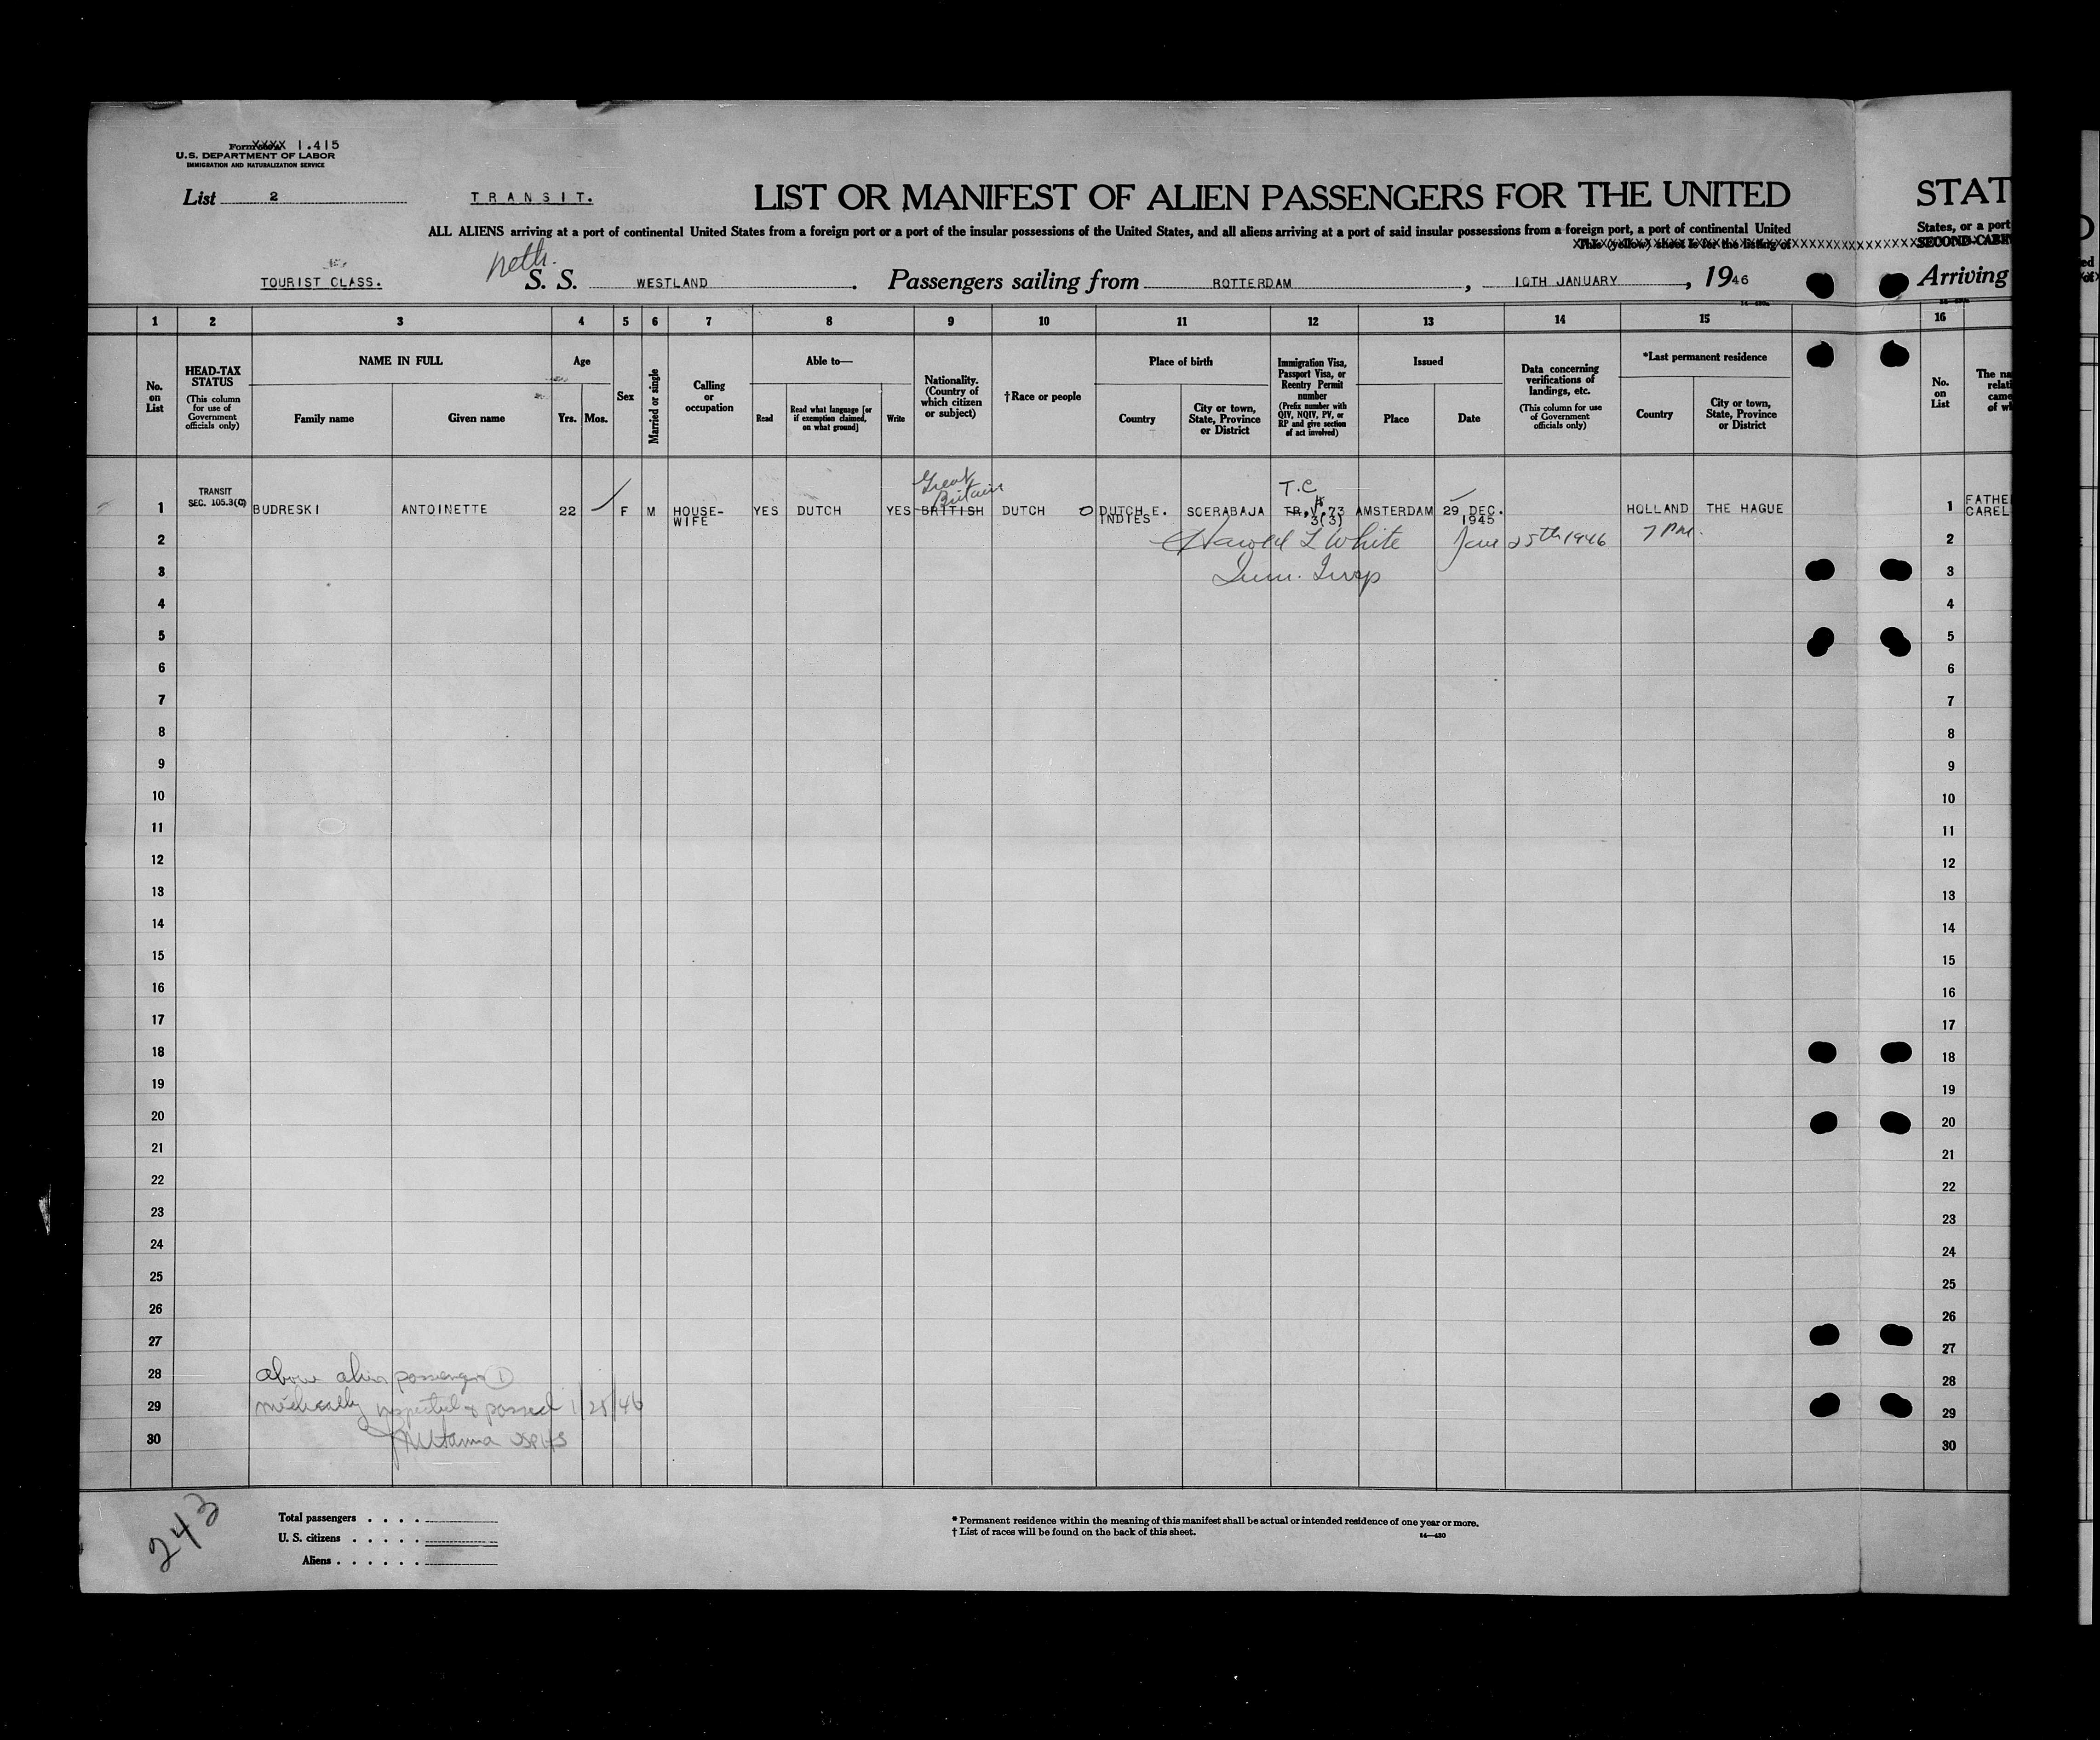 Form XXXX 1.415
U.S. DEPARTMENT OF LABOR
IMMIGRATION AND NATURALIZATION SERVICE
List 2
TRANSIT.
LIST OR MANIFEST OF ALIEN PASSENGERS FOR THE UNITED
STAT
ALL ALIENS arriving at a port of continental United States from a foreign port or a port of the insular possessions of the United States, and all aliens arriving at a port of said insular possessions from a foreign port, a port of continental United
States, or a port
This (yellow) sheet is for the listing of
SECOND-CABIN
TOURIST CLASS.
Neth.
S. S. WESTLAND. Passengers sailing from ROTTERDAM, 10TH JANUARY, 1946
Arriving
1 2 3 4 5 6 7 8 9 10 11 12 13 14 15 16
No. on List
HEAD-TAX STATUS
(This column for use of Government officials only)
NAME IN FULL
Family name
Given name
Age
Yrs. Mos.
Sex
Married or single
Calling or occupation
Able to—
Read
Read what language [or if exemption claimed, on what ground]
Write
Nationality. (Country of which citizen or subject)
†Race or people
Place of birth
Country
City or town, State, Province or District
Immigration Visa, Passport Visa, or Reentry Permit number
(Prefix number with QIV, NQIV, PV, or RP and give section of act involved)
Issued
Place
Date
Data concerning verifications of landings, etc.
(This column for use of Government officials only)
*Last permanent residence
Country
City or town, State, Province or District
No. on List
The na
relati
came
of wh
Great Britain
T.C
1 TRANSIT SEC. 105.3(C) BUDRESKI ANTOINETTE 22 F M HOUSE-WIFE YES DUTCH YES BRITISH DUTCH DUTCH E. INDIES SOERABAJA TR.V.73 3(3) AMSTERDAM 29 DEC. 1945 HOLLAND THE HAGUE 1 FATHE CAREL
2 Harold L White Jan 25th 1946 7 PM. 2
3 Imm. Insp 3
4 4
5 5
6 6
7 7
8 8
9 9
10 10
11 11
12 12
13 13
14 14
15 15
16 16
17 17
18 18
19 19
20 20
21 21
22 22
23 23
24 24
25 25
26 26
27 27
28 above alien passenger 1 28
29 medically inspected & passed 1/25/46 29
30 USPHS 30
243
Total passengers
U. S. citizens
Aliens
* Permanent residence within the meaning of this manifest shall be actual or intended residence of one year or more.
† List of races will be found on the back of this sheet.
14—430